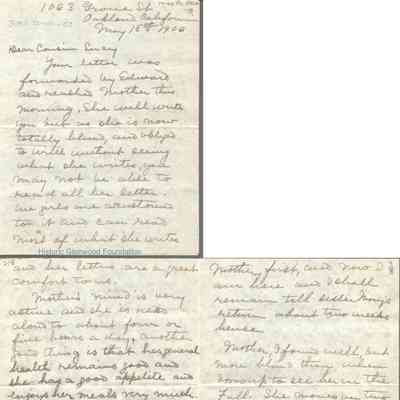 1063 Grove St.
Oakland California
May 15th 1906
Dear Cousin
Your letter was
forwarded by Edward
and reached Mother this
morning. She will write
you but as she is now
totally blind, and obliged
to write without seeing
what she writes, you
may not be able to
read all her letter.
We girls are accustomed
to it and can read
most of what she writes
Historic Glenwood Foundation
and her letters are a great
comfort to us.
Mother's mind is very
active and she is read
aloud to about four or
five hours a day, another
good thing is that her general
health remains good and
she has a good appetite and
enjoys her meals very much
Mother first, and now I
am here and I shall
remain till sister
return about two weeks
hence.
Mother, I found well, but
more blind than when
I came up to see her in the
Fall. She moves on two